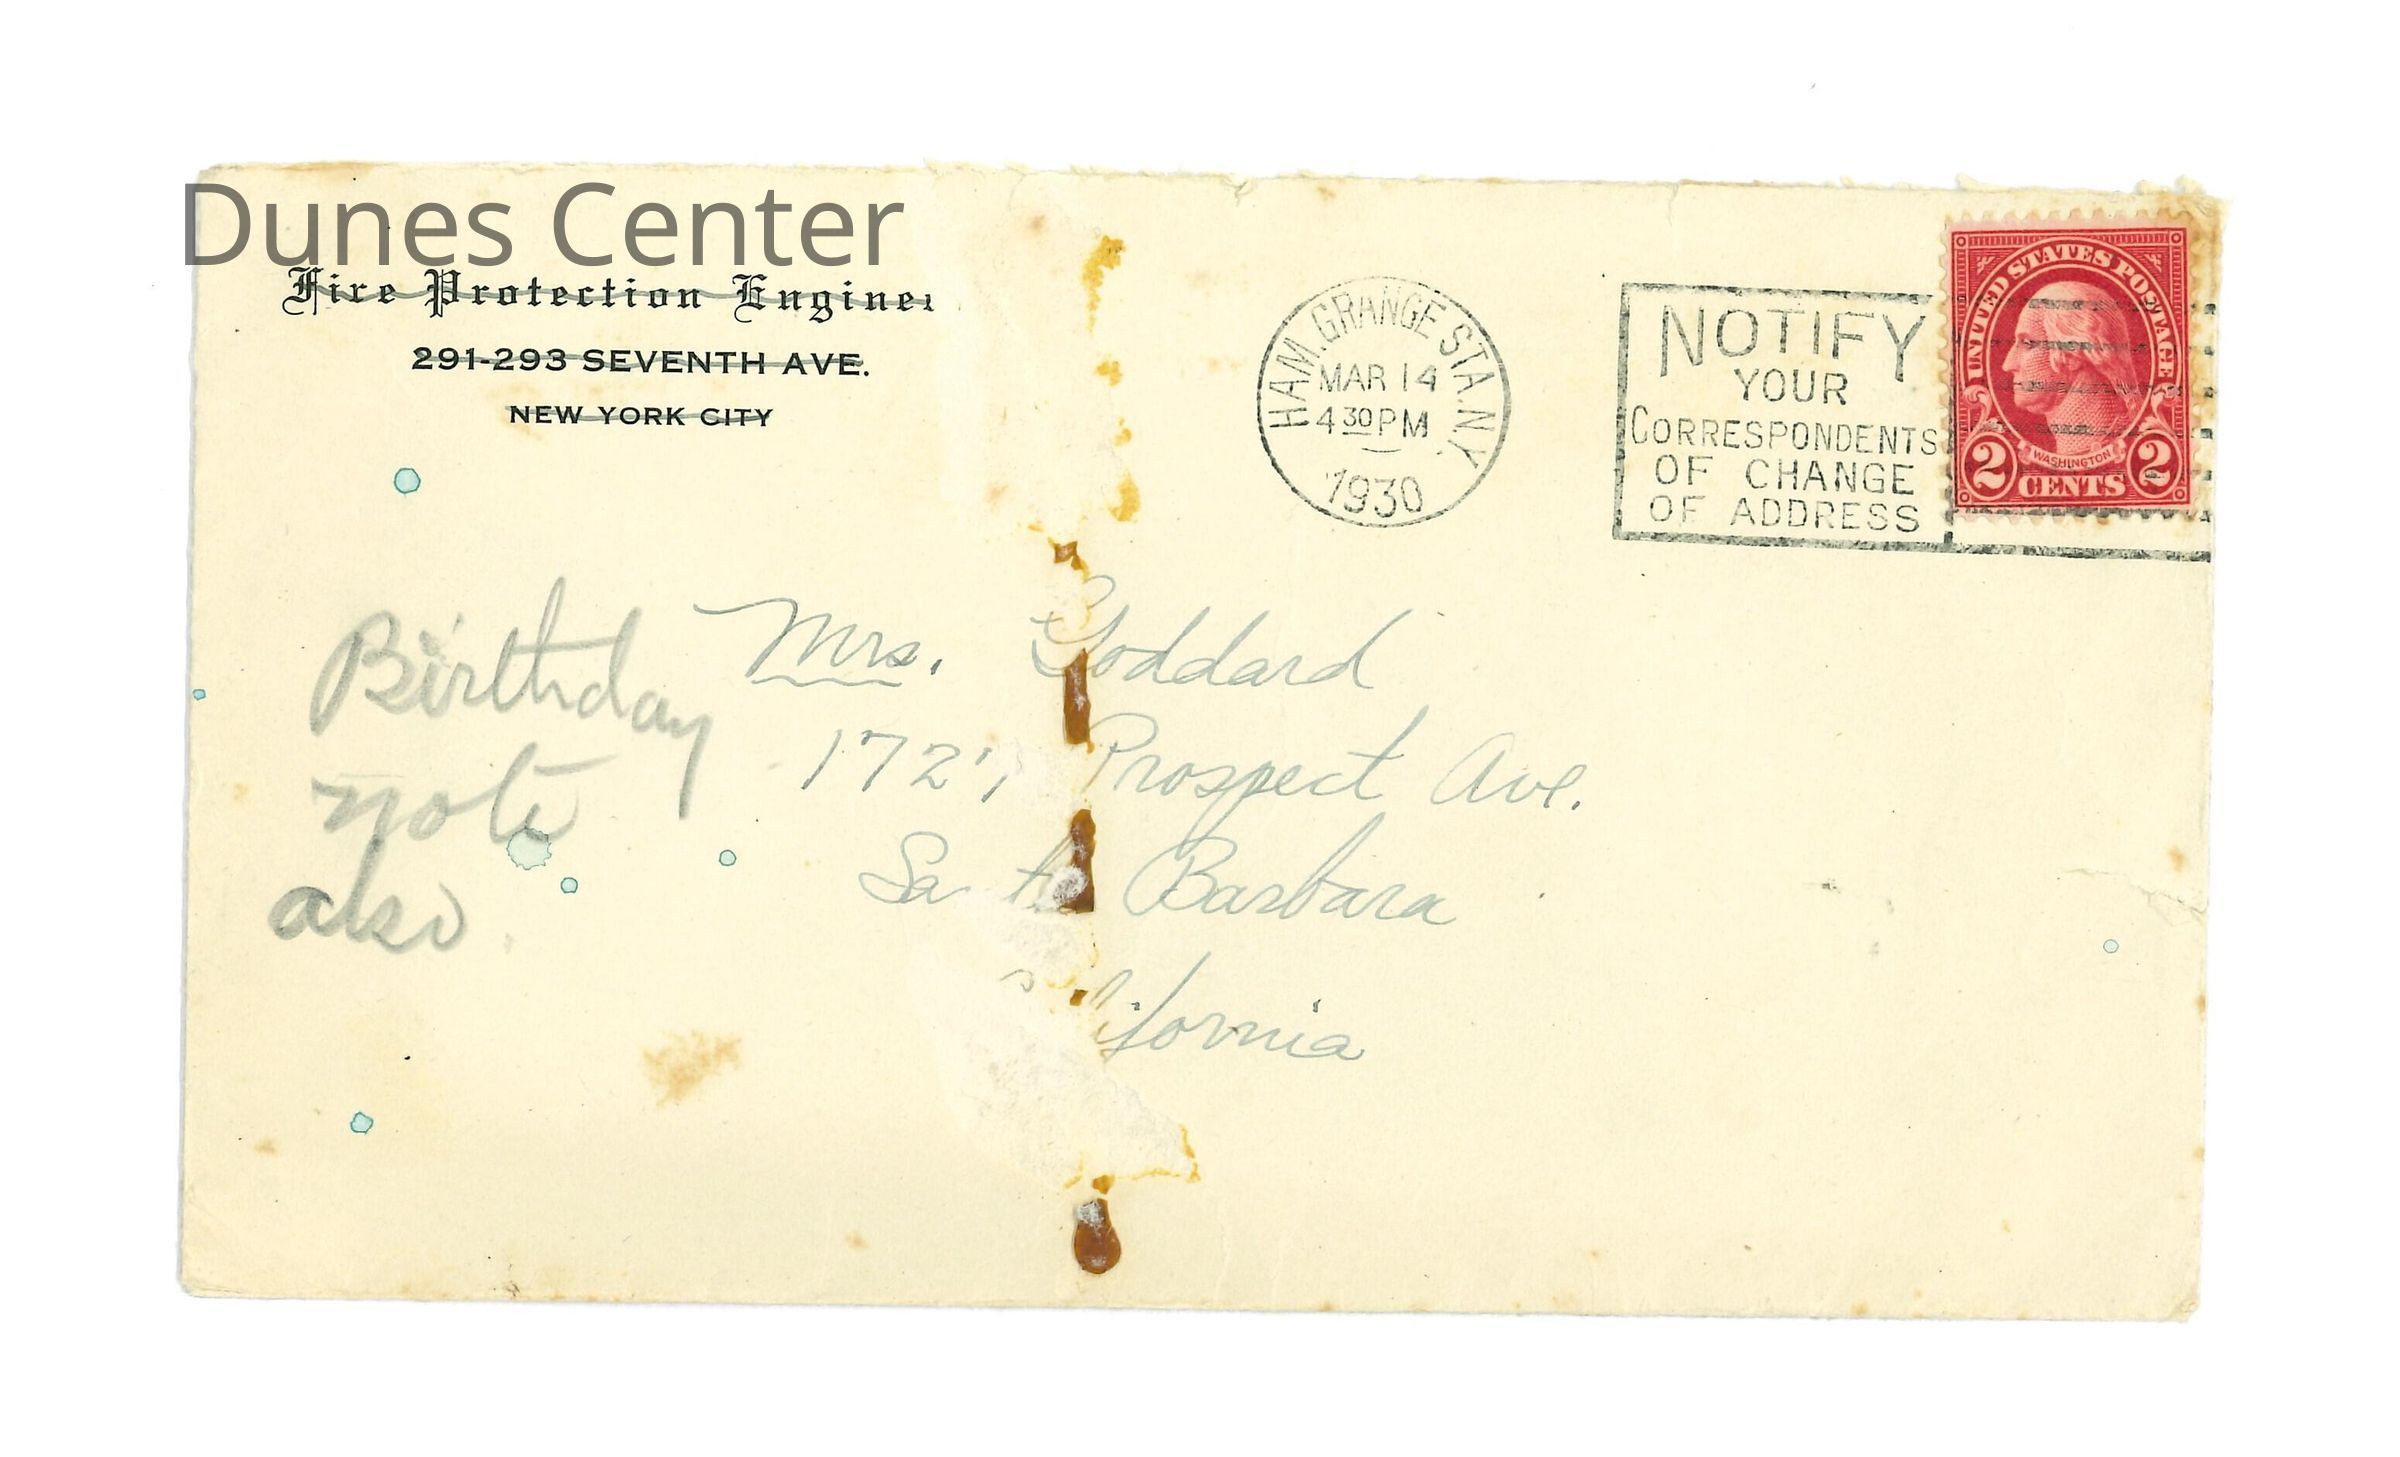 Dunes Center
Fire Protection Enginee
291-293 SEVENTH AVE.
NEW YORK CITY
HAM. GRANGE STA. N.Y.
MAR 14
4 30 PM
1930
NOTIFY
YOUR
CORRESPONDENTS
OF CHANGE
OF ADDRESS
UNITED STATES POSTAGE
WASHINGTON
2 CENTS 2
Birthday
note
also
Mrs. Goddard
Prospect Ave.
Barbara